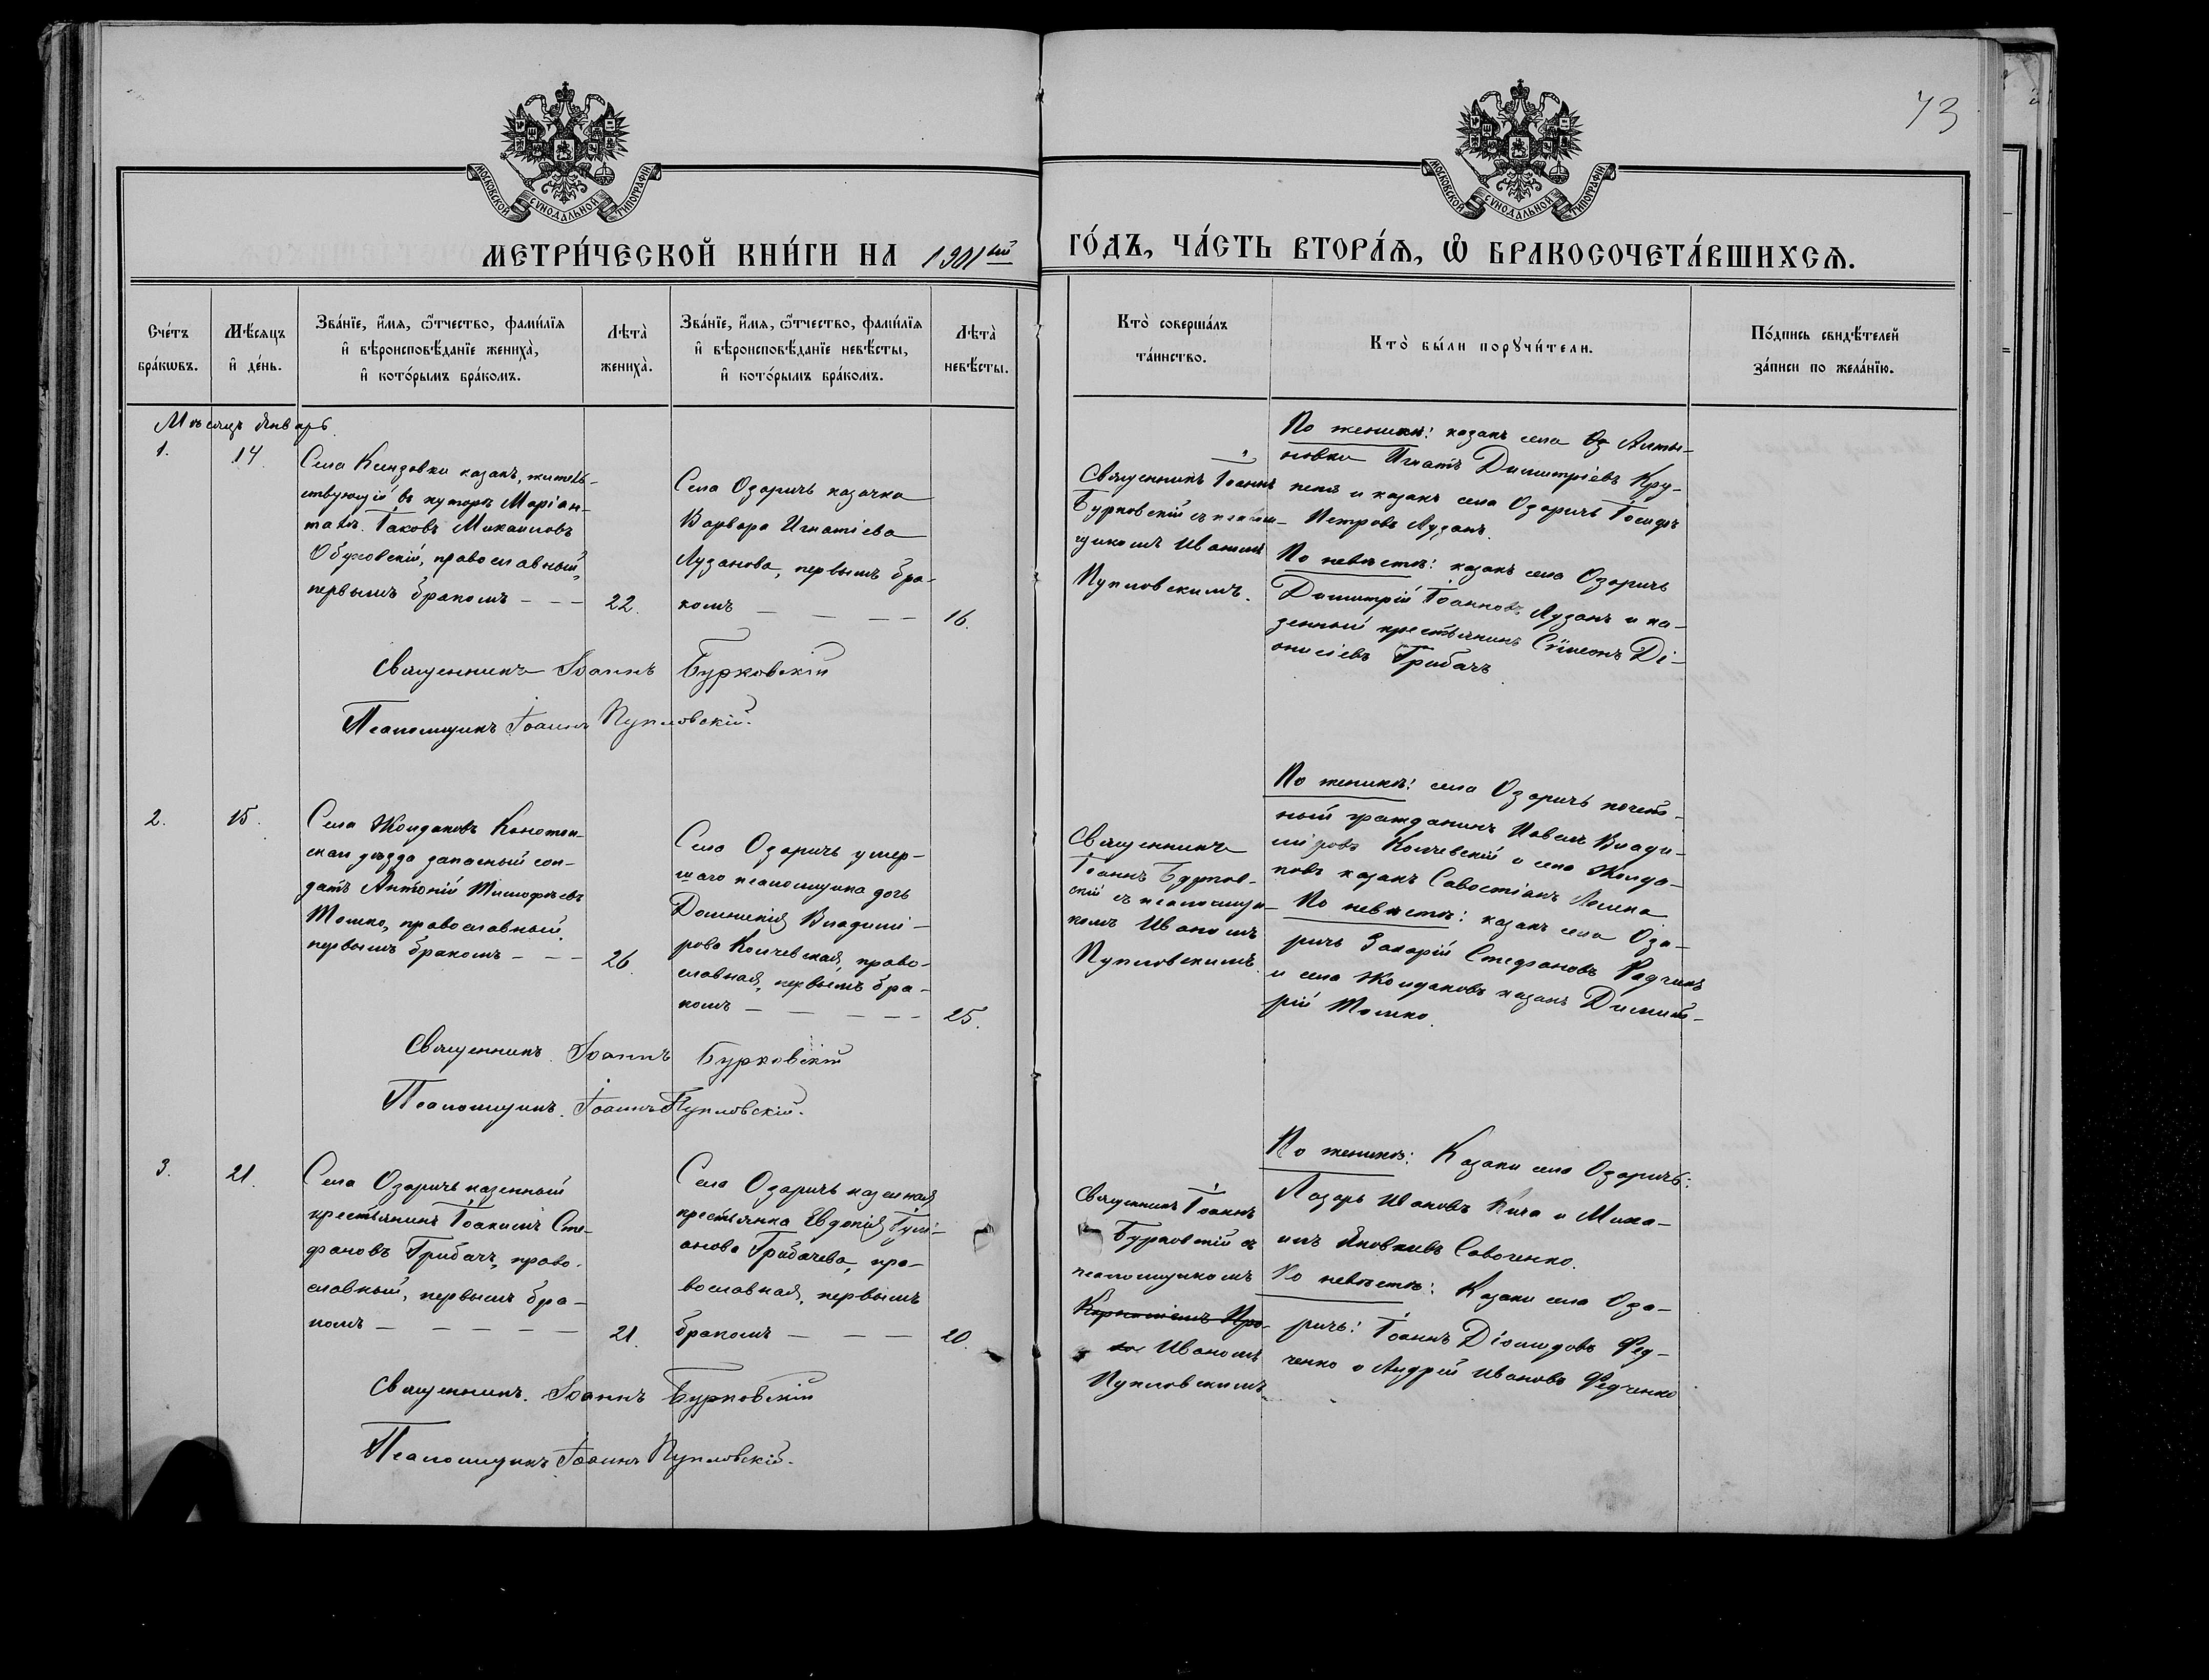 73
МОСКОВСКОЙ СУНОДАЛЬНОЙ ТИПОГРАФІИ
МОСКОВСКОЙ СУНОДАЛЬНОЙ ТИПОГРАФІИ
МЕТРИ́ЧЕСКОЙ КНИ́ГИ НА 1901ый
ГО́ДЪ, ЧА́СТЬ ВТОРА́Ѧ, Ѡ҆ БРАКОСОЧЕТА́ВШИХСѦ.
Сче́тъ
бра́кѡвъ.
Мѣ́сѧцъ
и҆ де́нь.
Зва́нїе, и҆́мѧ, ѻ҆́тчество, фами́лїѧ
и҆ вѣроисповѣ́данїе жениха̀,
и҆ кото́рымъ бра́комъ.
Лѣта̀
жениха̀.
Зва́нїе, и҆́мѧ, ѻ҆́тчество, фами́лїѧ
и҆ вѣроисповѣ́данїе невѣ́сты,
и҆ кото́рымъ бра́комъ.
Лѣта̀
невѣ́сты.
Кто̀ соверша́лъ
та́инство.
Кто̀ бы́ли порꙋчи́тели.
По́дпись свидѣ́телей
за́писи по жела́нїю.
Мѣсяцъ Январь
1.
14.
Села Кендовки казакъ, житель-
ствующій въ хуторѣ Маріан-
Іаковъ Михаиловъ
Обуховскій, православный,
первымъ бракомъ - - -
22.
Села Озаричъ казачка
Варвара Игнатіева
Лузанова, первымъ бра-
комъ — — —
16.
Священникъ Іоаннъ
Бурковскій съ псалом-
щикомъ Иваномъ
Пупловскимъ.
По женихѣ: казакъ села Оз Алты-
новки Игнатъ Димитріевъ Кру-
и казакъ села Озаричъ Іосифъ
Петровъ Лузанъ.
По невѣстѣ: казакъ села Озаричъ
Димитрій Іоанновъ Лузанъ и ка-
зенный крестьянинъ Сѵмеонъ Ді-
онисіевъ Грибачъ.
Священникъ Іоаннъ Бурковскій
Псаломщикъ Іоаннъ Пупловскій.
2.
15.
Села Жолдаковъ Конотоп-
скаго уѣзда запасный сол-
датъ Антоній Тимофѣевъ
Томко, православный,
первымъ бракомъ - - -
26.
Села Озаричъ умер-
шаго псаломщика дочь
Домникія Владими-
рова Колчевская, право-
славная, первымъ бра-
комъ — — — —
25.
Священникъ
Іоаннъ Бурков-
скій съ псаломщи-
комъ Иваномъ
Пупловскимъ.
По женихѣ: села Озаричъ почет-
ный гражданинъ Павелъ Влади-
міровъ Колчевскій и села Жолда-
ковъ казакъ Савостіанъ
По невѣстѣ: казакъ села Оза-
ричъ Захарій Стефановъ Радчикъ
и села Жолдаковъ казакъ Димит-
рій Томко.
Священникъ Іоаннъ Бурковскій
Псаломщикъ. Іоаннъ Пупловскій.
3.
21.
Села Озаричъ казенный
крестьянинъ Іоакимъ Сте-
фановъ Грибачъ, право-
славный, первымъ бра-
комъ — — — — —
21.
Села Озаричъ казенная
крестьянка Евдокія Гулі-
анова Грибачева, пра-
вославная, первымъ
бракомъ — — —
20.
Священникъ Іоаннъ
Бурковскій съ
псаломщикомъ
Иваномъ
Пупловскимъ
По женихѣ: Казаки села Озаричъ:
Лазарь Ивановъ Кича и Миха-
илъ Яковлевъ Савченко.
По невѣстѣ: Казаки села Оза-
ричъ: Іоаннъ Діомидовъ Фед-
ченко и Андрей Ивановъ Федченко
Священникъ. Іоаннъ Бурковскій
Псаломщикъ Іоаннъ Пупловскій.